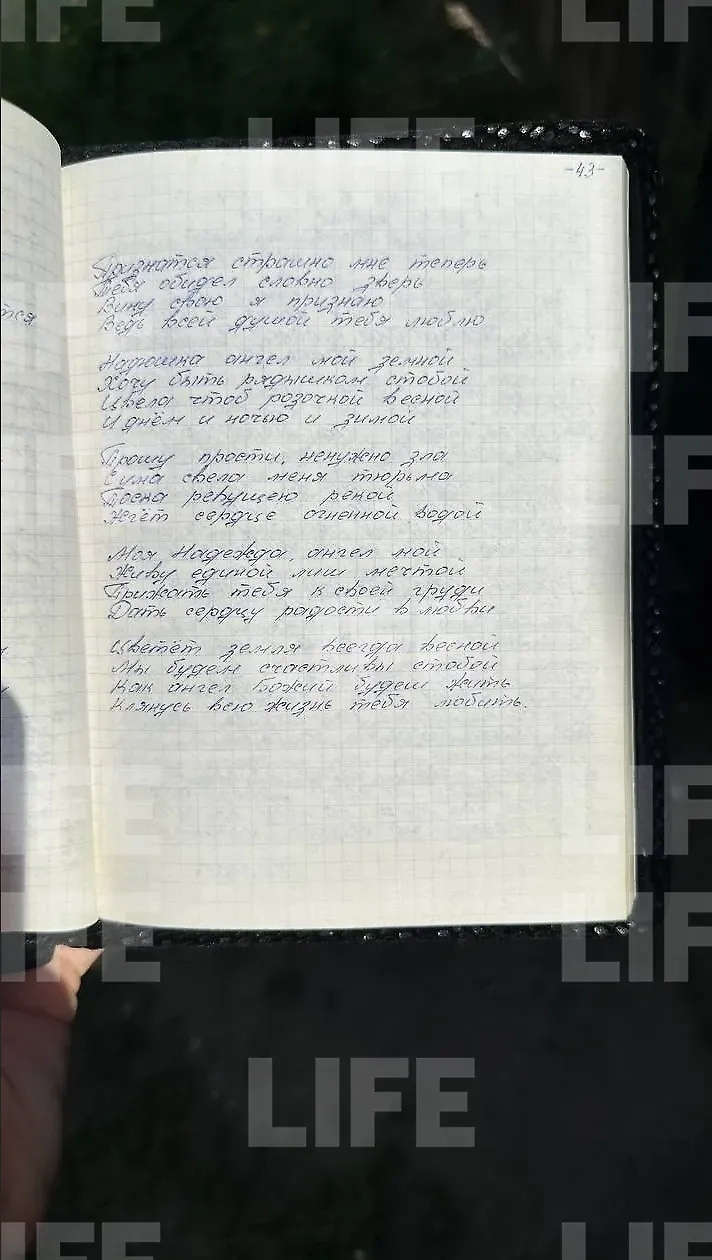 LIFE
LIFE
LIFE
-43-
Признатся страшно мне теперь
Тебя обидел словно зверь
Вину свою я признаю
Ведь всей душой тебя люблю
тся
LIFE
Надюшка ангел мой земной
Хочу быть рядышком стобой
Цвела чтоб розочкой весной
И днём и ночью и зимой
LIFE
Прошу прости, ненужно зла
Сума свела меня тюрьма
Тоска ревущею рекой
Жгёт сердце огненной водой
Моя Надежда, ангел мой
Живу единой лиш мечтой
Прижать тебя к своей груди
Дать сердцу радости в любви
Цветёт земля всегда весной
Мы будем счастливы стобой
Как ангел Божий будеш жить
Клянусь всю жизнь тебя любить.
LIFE
LIFE
LIFE
LIFE
LIFE
LIFE
LIFE